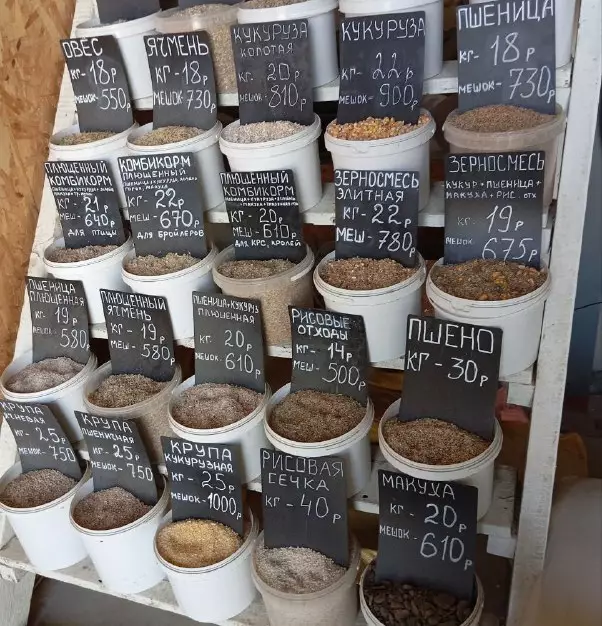 ОВЁС
КГ-18Р
МЕШОК-550
ЯЧМЕНЬ
КГ-18Р
МЕШОК-730
КУКУРУЗА
КОЛОТАЯ
КГ 20Р
МЕШОК-810
КУКУРУЗА
КГ-22Р
МЕШОК-900
ПШЕНИЦА
КГ-18Р
МЕШОК-730
ПЛЮЩЕННЫЙ
КОМБИКОРМ
КГ-21Р
МЕШ-640Р
ДЛЯ ПТИЦЫ
КОМБИКОРМ
ПЛЮЩЕННЫЙ
КГ-22Р
МЕШ-670Р
ДЛЯ БРОЙЛЕРОВ
ПЛЮЩЕННЫЙ
КОМБИКОРМ
КГ-20Р
МЕШ-610Р
ДЛЯ КРС, КРОЛЕЙ
ЗЕРНОСМЕСЬ
ЭЛИТНАЯ
КГ-22Р
МЕШ-780Р
ЗЕРНОСМЕСЬ
КУКУР+ПШЕНИЦА+
МАКУХА+РИС. ОТХ
КГ-19Р
МЕШОК-675Р
ПШЕНИЦА
ПЛЮЩЕННАЯ
КГ-19Р
МЕШОК-580
ПЛЮЩЕННЫЙ
ЯЧМЕНЬ
КГ-19Р
МЕШОК-580
ПШЕНИЦА+КУКУРУЗ
ПЛЮЩЕННАЯ
КГ 20Р
МЕШОК-610Р
РИСОВЫЕ
ОТХОДЫ
КГ-14Р
МЕШ-500Р
ПШЕНО
КГ-30Р
КРУПА
КГ-25Р
МЕШОК-750
КРУПА
ПШЕНИЧНАЯ
КГ-25Р
МЕШОК-750
КРУПА
КУКУРУЗНАЯ
КГ-25Р
МЕШОК-1000Р
РИСОВАЯ
СЕЧКА
КГ-40Р
МАКУХА
КГ-20Р
МЕШОК
610Р